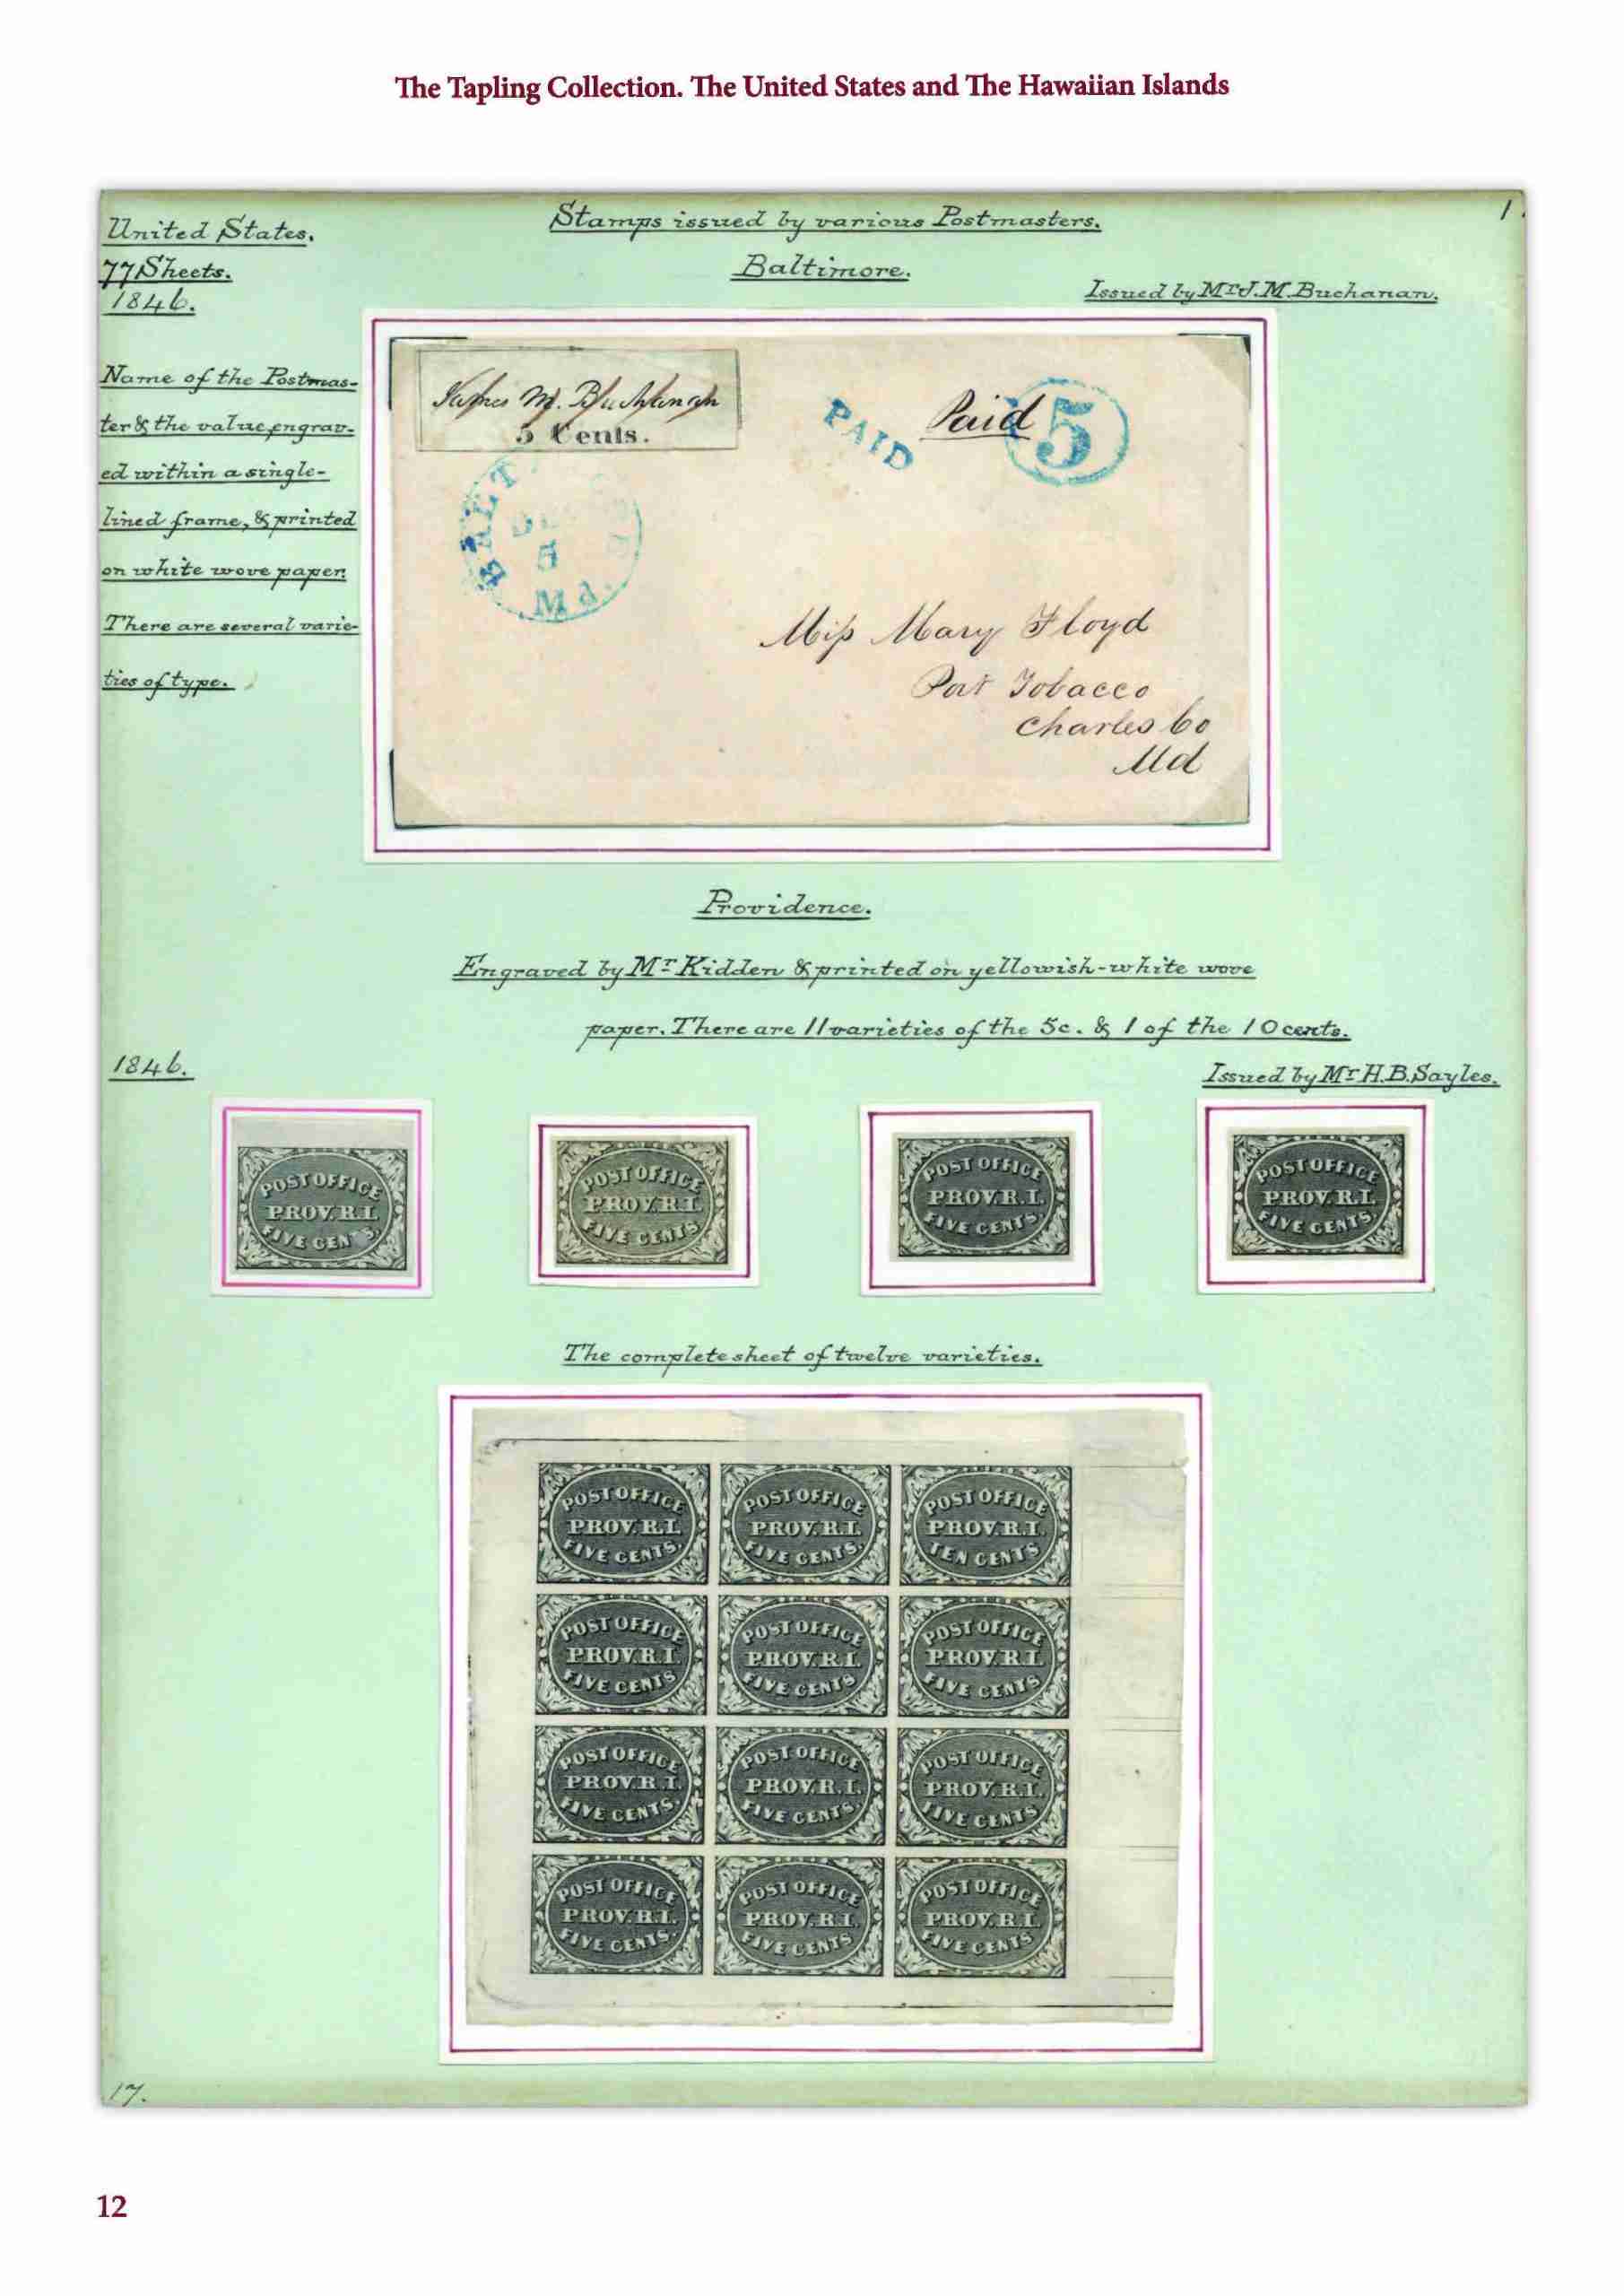 The Tapling Collection. The United States and The Hawaiian Islands
United States.
Stamps issued by various Postmasters.
1.
77 Sheets.
Baltimore.
1846.
Issued by Mr J. M. Buchanan.
Name of the Postmas-
ter & the value, engrav-
ed within a single-
lined frame, & printed
on white wove paper.
There are several varie-
ties of type.
James M. Buchanan
5 Cents.
PAID
Paid
5
5
Md.
Miss Mary Floyd
Port Tobacco
Charles Co
Md
Providence.
Engraved by Mr Kidden & printed on yellowish-white wove
paper. There are 11 varieties of the 5c. & 1 of the 10 cents.
1846.
Issued by Mr H. B. Sayles.
POST OFFICE
PROV. R.I.
FIVE CENTS.
POST OFFICE
PROV. R.I.
FIVE CENTS
POST OFFICE
PROV. R.I.
FIVE CENTS.
POST OFFICE
PROV. R.I.
FIVE CENTS.
The complete sheet of twelve varieties.
POST OFFICE
PROV. R.I.
FIVE CENTS.
POST OFFICE
PROV. R.I.
FIVE CENTS.
POST OFFICE
PROV. R.I.
TEN CENTS
POST OFFICE
PROV. R.I.
FIVE CENTS
POST OFFICE
PROV. R.I.
FIVE CENTS
POST OFFICE
PROV. R.I.
FIVE CENTS
POST OFFICE
PROV. R.I.
FIVE CENTS.
POST OFFICE
PROV. R.I.
FIVE CENTS.
POST OFFICE
PROV. R.I.
FIVE CENTS
POST OFFICE
PROV. R.I.
FIVE CENTS.
POST OFFICE
PROV. R.I.
FIVE CENTS
POST OFFICE
PROV. R.I.
FIVE CENTS
17.
12